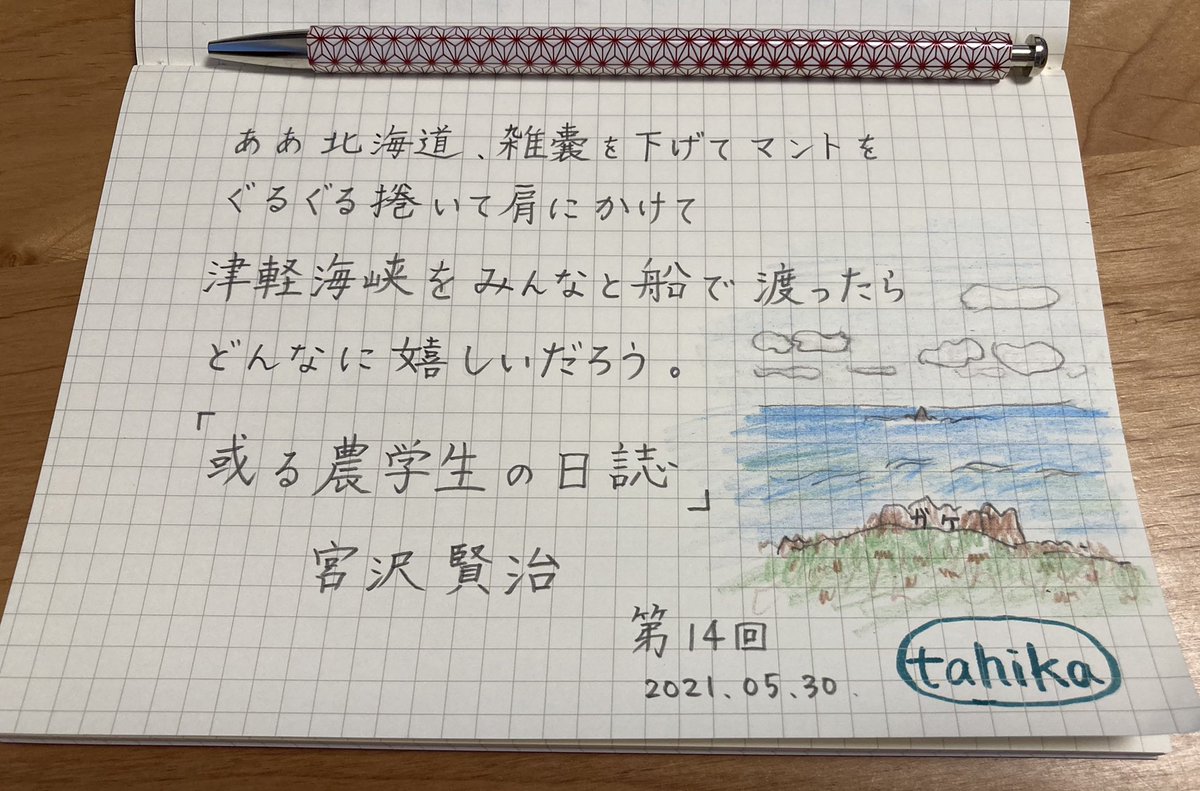 ああ北海道、雑嚢を下げてマントを
ぐるぐる捲いて肩にかけて
津軽海峡をみんなと船で渡ったら
どんなに嬉しいだろう。
「或る農学生の日誌」
宮沢賢治
ガケ
第14回
2021.05.30.
tahika